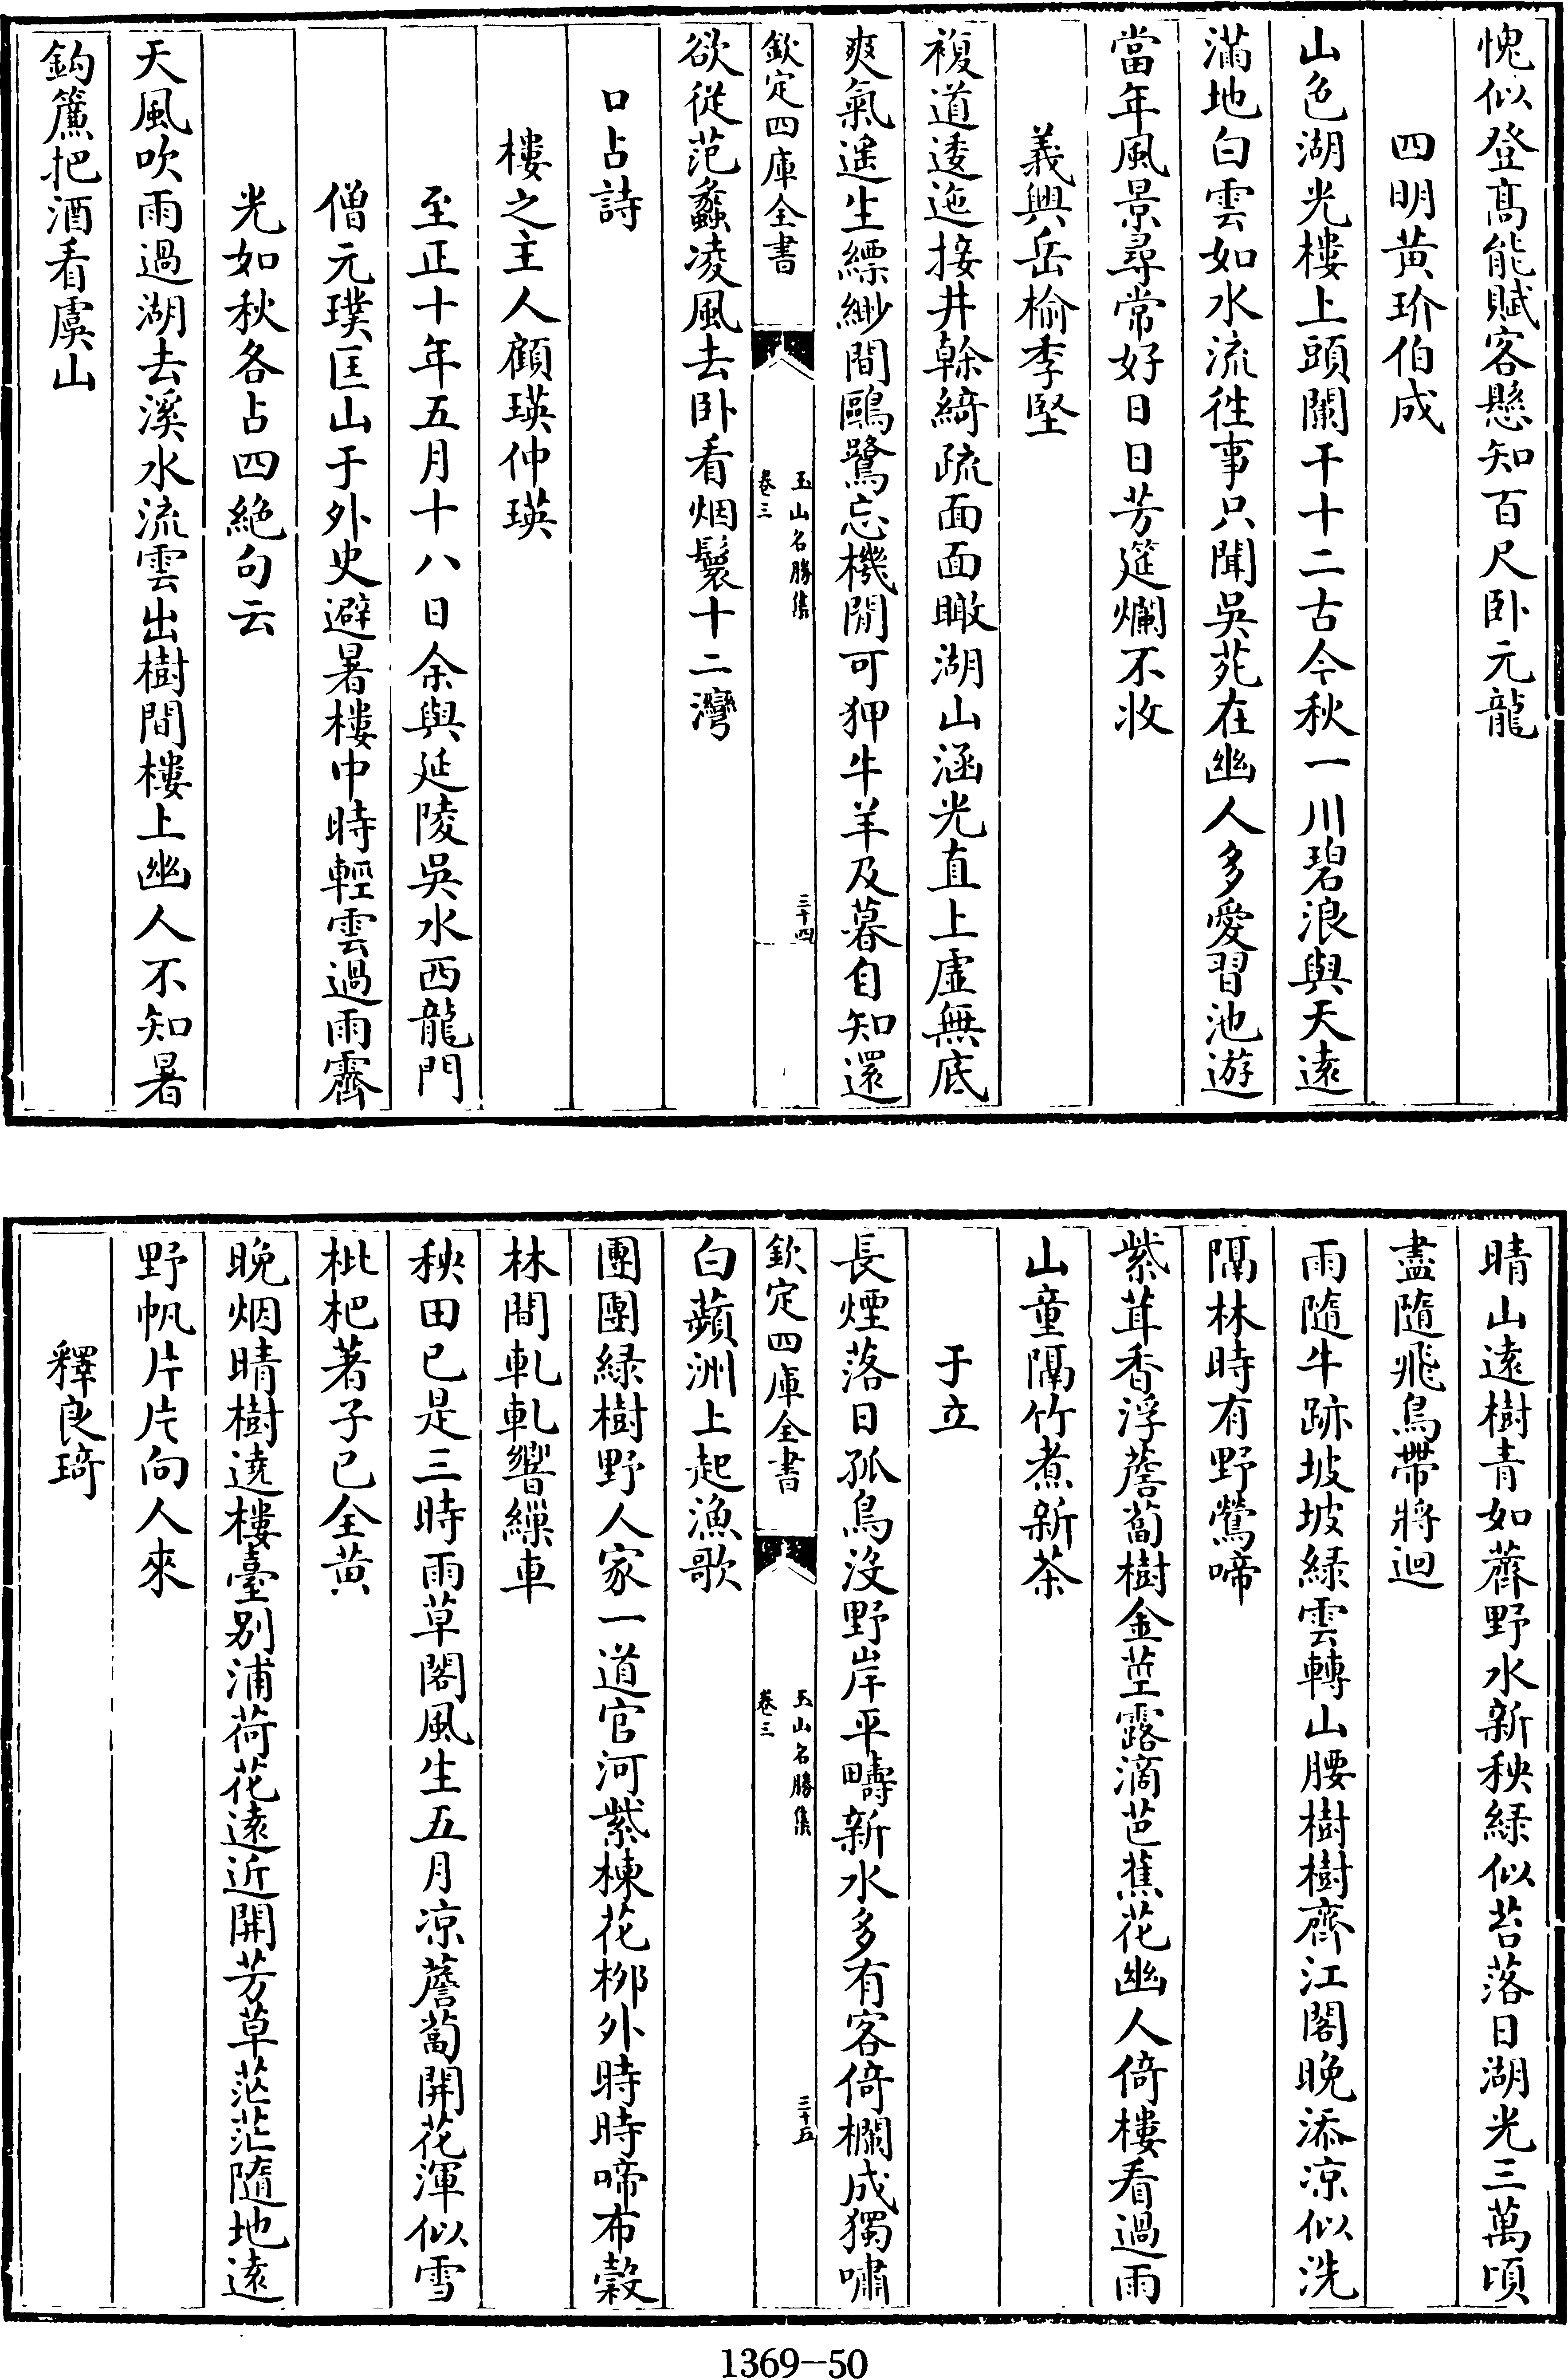 愧似登髙能賦客懸知百尺卧元龍
四明黄玠伯成
山色湖光樓上頭闌干十二古今秋一川碧浪與天逺
滿地白雲如水流徃事只聞吳苑在幽人多愛習池遊
當年風景尋常好日日芳筵爛不收
義興岳榆季堅
複道逶迤接井幹綺疏面面瞰湖山涵光直上虛無底
爽氣遥生縹緲間鷗鷺忘機閒可狎牛羊及暮自知還
欽定四庫全書
玉山名勝集
卷三
三十四
欲從范蠡凌風去卧看烟鬟十二灣
口占詩
樓之主人顧瑛仲瑛
至正十年五月十八日余與延陵吳水西龍門
僧元璞匡山于外史避暑樓中時輕雲過雨霽
光如秋各占四絶句云
天風吹雨過湖去溪水流雲出樹間樓上幽人不知暑
鈎簾把酒看虞山
晴山逺樹青如薺野水新秧緑似苔落日湖光三萬頃
盡隨飛鳥帶將迴
雨隨牛跡坡坡緑雲轉山腰樹樹齊江閣晚添凉似洗
隔林時有野鶯啼
紫茸香浮薝蔔樹金莖露滴芭蕉花幽人倚樓看過雨
山童隔竹煮新茶
于立
長煙落日孤鳥没野岸平疇新水多有客倚欄成獨嘯
欽定四庫全書
玉山名勝集
卷三
三十五
白蘋洲上起漁歌
團團緑樹野人家一道官河紫楝花栁外時時啼布榖
林間軋軋響繅車
秧田已是三時雨草閣風生五月凉薝蔔開花渾似雪
枇杷著子已全黄
晚烟晴樹遶樓臺别浦荷花逺近開芳草茫茫隨地逺
野帆片片向人來
釋良琦
1369-50